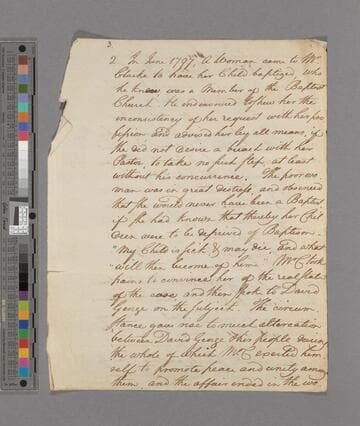 3.
2 In June 1797, A Woman came to Mr
Clarke to have her Child baptized, who
he knew was a Member of the Baptist
Church. He endeavoured to shew her the
inconsistency of her request with her pro
fession and advised her by all means, if
she did not desire a breach with her
Pastor, to take no such step, at least
without his concurrence. The poor wo
man was in great distress, and observed
that she would never have been a Baptist
if she had known that thereby her Chil
dren were to be deprived of Baptism.
"My Child is sick & may die and what
"will then become of him." Mr Clark
pains to convince her of the real state
of the case and then spoke to David
George on the subject. The circum
stance gave rise to much altercation
between David George & his people during
the whole of which Mr C exerted him
self to promote peace and unity among
them and the affair ended in the wo